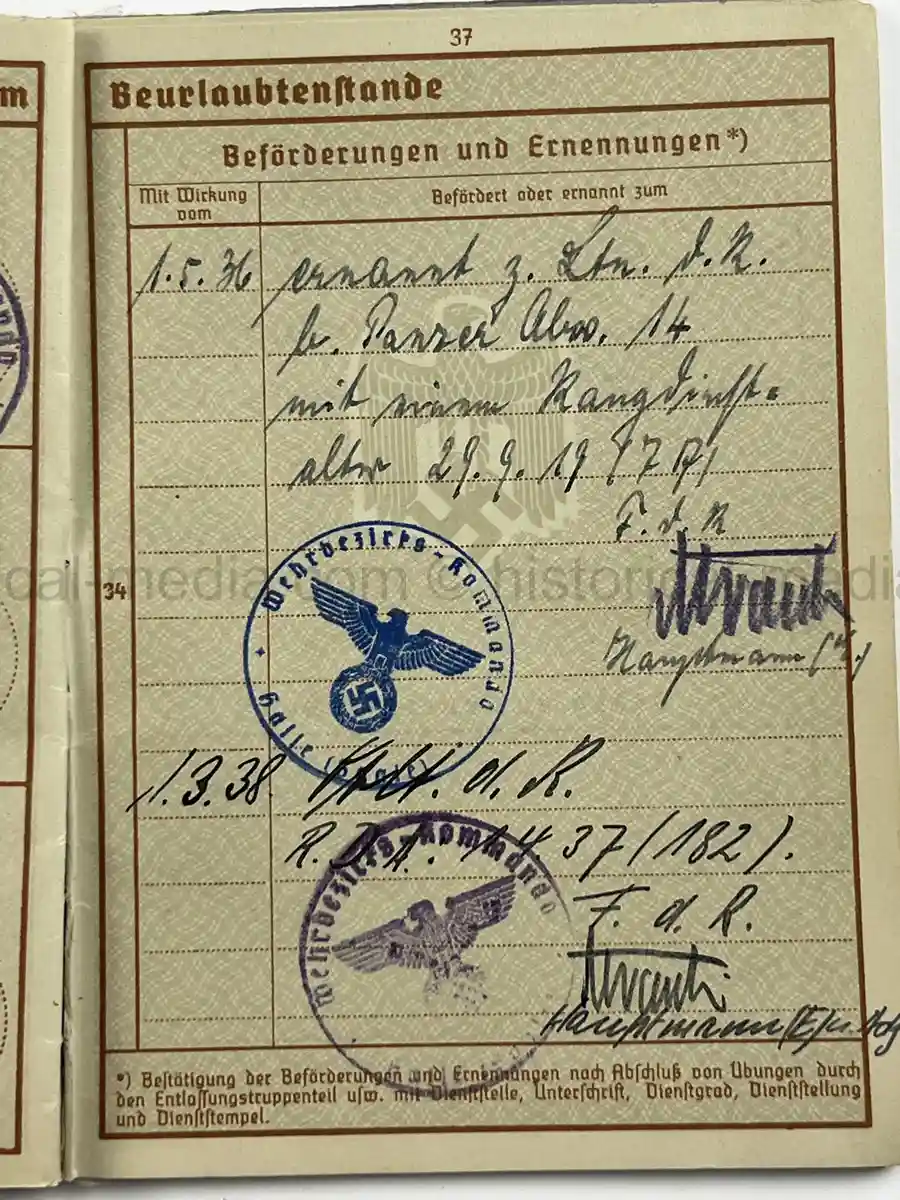 37
m
Beurlaubtenstande
Beförderungen und Ernennungen*)
Mit Wirkung vom
Befördert oder ernannt zum
1.5.36 ernannt z. Ltn. d. R.
b. Panzer Abw. 14
mit einem Rangdienst=
alter 29.9.19 (77)
F. d. R
34
Wehrbezirks-Kommando
Halle (Saale)
Hauptmann (E.)
1.3.38. Obltn. d. R.
R. D. A. 1.4.37 (182).
F. d. R.
Wehrbezirks-Kommando
Hauptmann (E)
*) Bestätigung der Beförderungen und Ernennungen nach Abschluß von Übungen durch
den Entlassungstruppenteil usw. mit Dienststelle, Unterschrift, Dienstgrad, Dienststellung
und Dienststempel.